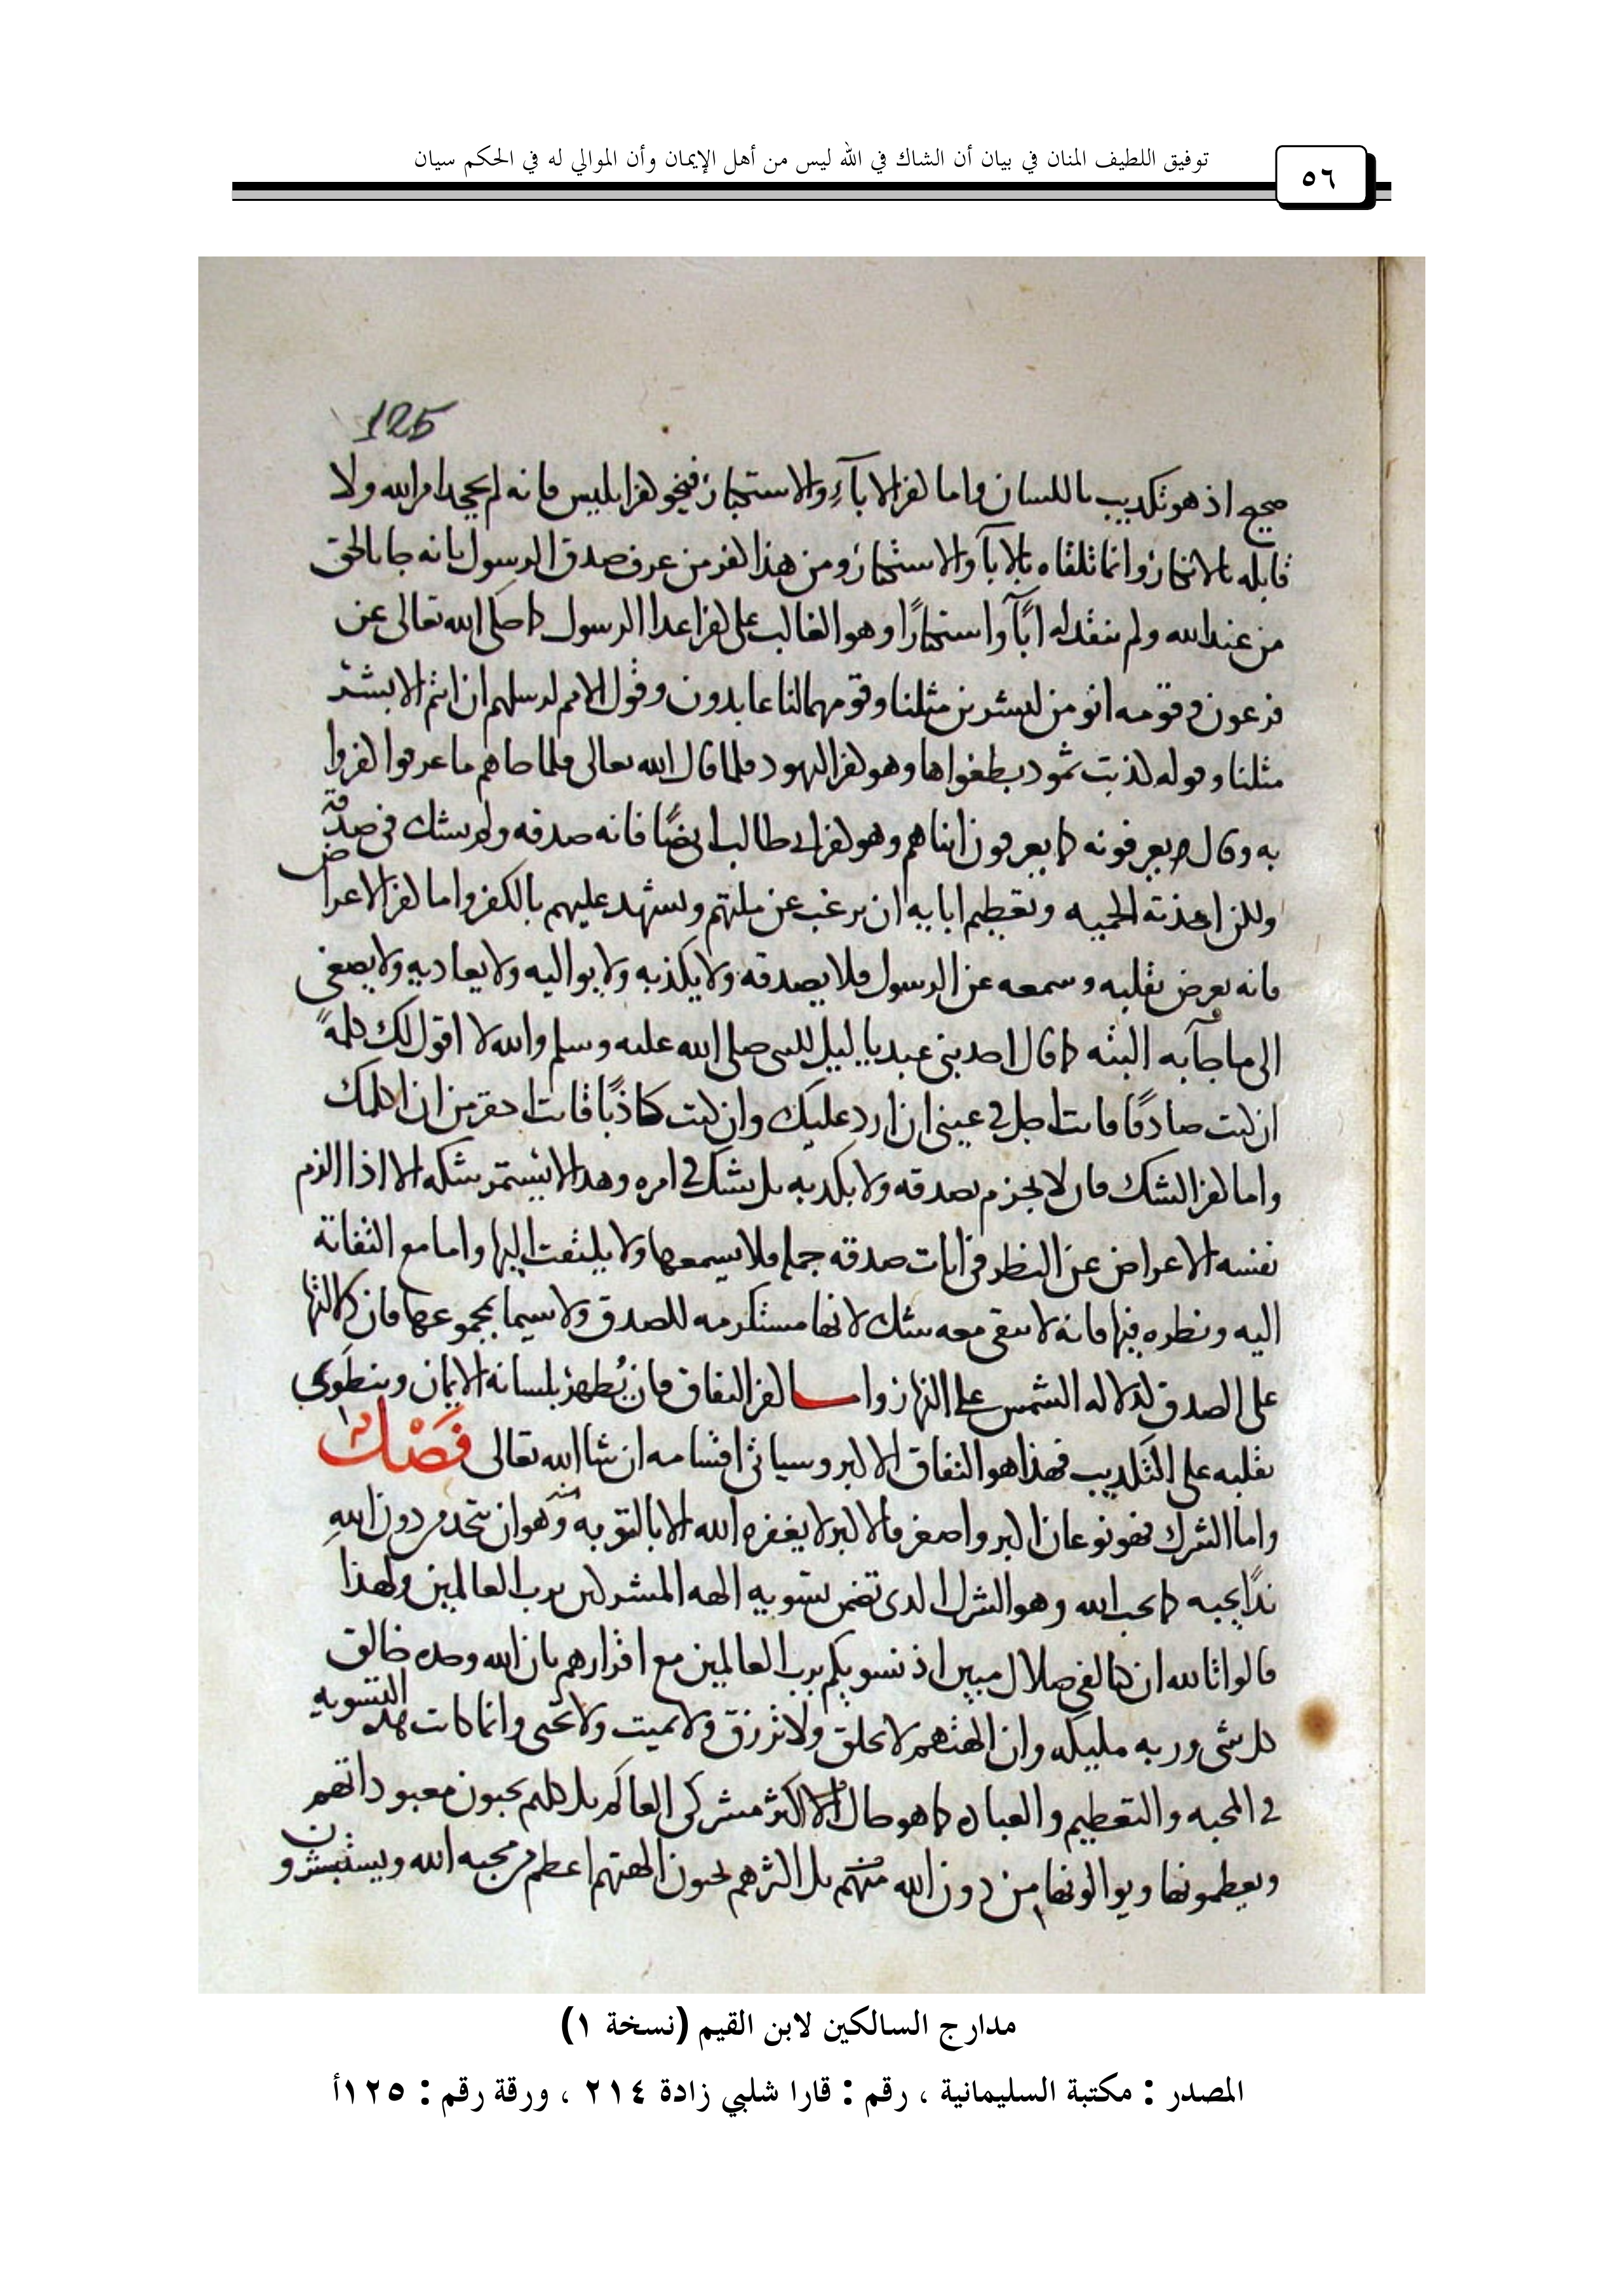 توفيق اللطيف المنان في بيان أن الشاك في الله ليس من أهل الإيمان وأن الموالي له في الحكم سيان
٥٦
125
صحيح اذ هو تكذيب باللسان واما كفر الاباءِ والاستكبار فنحو كفر ابليس فانه لم يجحد امر الله ولا
قابله بالانكار وانما تلقاه بالابآ والاستكبار ومن هذا كفر من عرف صدق الرسول بانه جا بالحق
من عند الله ولم ينقد له ابآً واستكبارًا وهو الغالب على كفر اعدا الرسول كما حكى الله تعالى عن
فرعون وقومه انومن لبشرين مثلنا وقومهما لنا عابدون وقول الامم لرسلهم ان انتم الا بشر
مثلنا وقوله كذبت ثمود بطغواها وهو كفر اليهود فلما قال الله تعالى فلما جاهم ما عرفوا كفروا
به وقال يعرفونه كما يعرفون ابناهم وهو كفر ابي طالب ايضًا فانه صدقه ولم يشك في صدقه
ولكن اخذته الحميه وتعظيم ابايه ان يرغب عن ملتهم ويشهد عليهم بالكفر واما كفر الاعراض
فانه يعرض بقلبه وسمعه عن الرسول فلا يصدقه ولا يكذبه ولا يواليه ولا يعاديه ولا يصغى
الى ما جآ به البته كما قال احد بنى عبد ياليل للنبي صلى الله عليه وسلم والله لا اقول لك كلمةً
ان كنت صادقًا فانت اجل في عينى ان ارد عليك وان كنت كاذبًا فانت احقر من ان اكلمك
واما كفر الشك فان لا يجزم بصدقه ولا يكذبه بل يشك في امره وهذا لا يستمر شكه الا اذا الزم
نفسه الاعراض عن النظر في ايات صدقه جملة فلا يسمعها ولا يلتفت اليها واما مع التفاته
اليه ونظره فيها فانه لا يبقى معه شك لانها مستلزمه للصدق ولا سيما بمجموعها فان دلالتها
على الصدق كدلاله الشمس على النهار واما كفر النفاق فان يُظهر بلسانه الايمان وينطوي
بقلبه على التكذيب فهذا هو النفاق الاكبر وسياتي اقسامه ان شا الله تعالى فَصْل
واما الشرك فهو نوعان اكبر واصغر فالاكبر لا يغفره الله الا بالتوبه منه وهو ان يتخذ من دون اللهِ
ندًا يحبه كما يحب الله وهو الشرك الذى تضمن تسويه الهه المشركين برب العالمين ولهذا
قالوا تالله ان كنا لفي ضلال مبين اذ نسويكم برب العالمين مع اقرارهم بان الله وحده خالق
كل شى وربه مليكه وان الهتهم لا تخلق ولا ترزق ولا تميت ولا تحى وانما كانت هذه التسويه
في المحبه والتعظيم والعباده كما هو حال اكثر مشركى العالم بل كلهم يحبون معبوداتهم
ويعظمونها ويوالونها من دون الله منهم بل اكثرهم يحبون الهتهم اعظم من محبه الله ويستبشرون
مدارج السالكين لابن القيم (نسخة ١)
المصدر : مكتبة السليمانية ، رقم : قارا شلبي زادة ٢١٤ ، ورقة رقم : ١٢٥أ